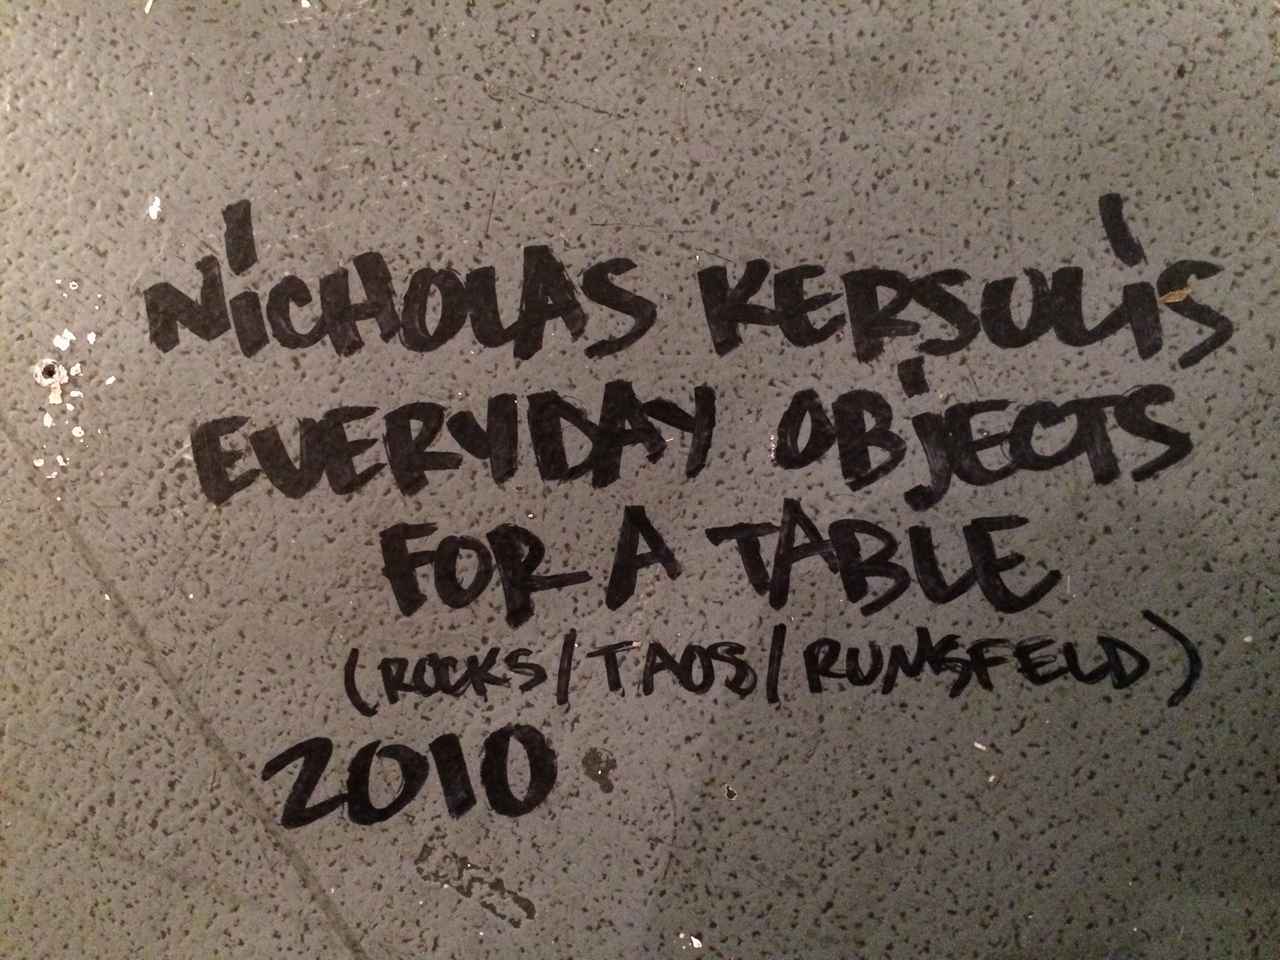 NiCHOLAS KERSULiS
EVERYDAY OBjECTS
FOR A TABLE
(ROCKS/TAOS/RUMSFELD)
2010